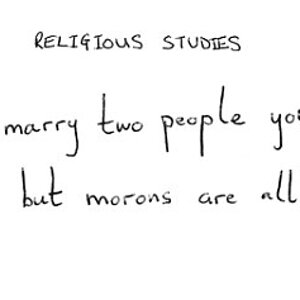 RELIGIOUS STUDIES
marry two people yo
but morons are all